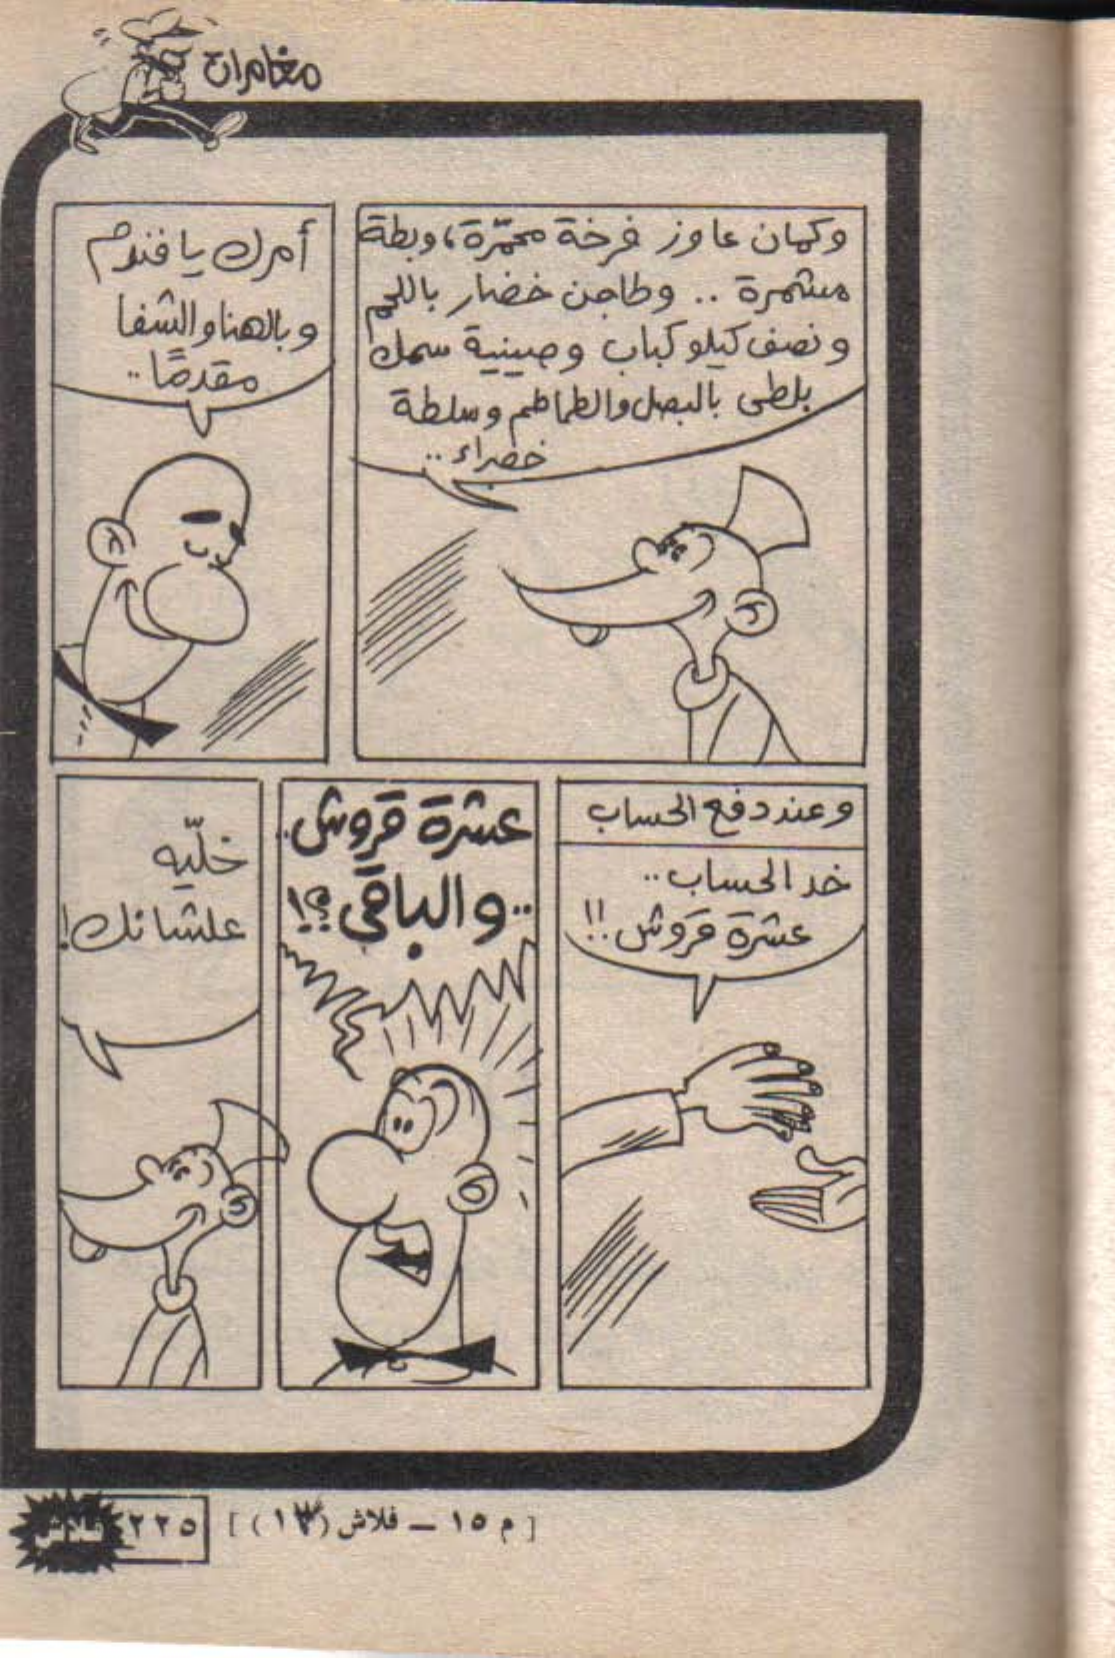 مغامرات
وكمان عاوز فرخة محمّرة، وبطة
مشمرة .. وطاجن خضار باللحم
ونصف كيلو كباب وصينية سمك
بلطى بالبصل والطماطم وسلطة
خضراء ..
أمرك يا فندم
وبالهنا والشفا
مقدمًا ..
وعند دفع الحساب
خد الحساب ..
عشرة قروش !!
عشرة قروش ..
.. والباقي ؟!
خلّيه
علشانك !
[ م ١٥ – فلاش (١٣) ]
٢٢٥